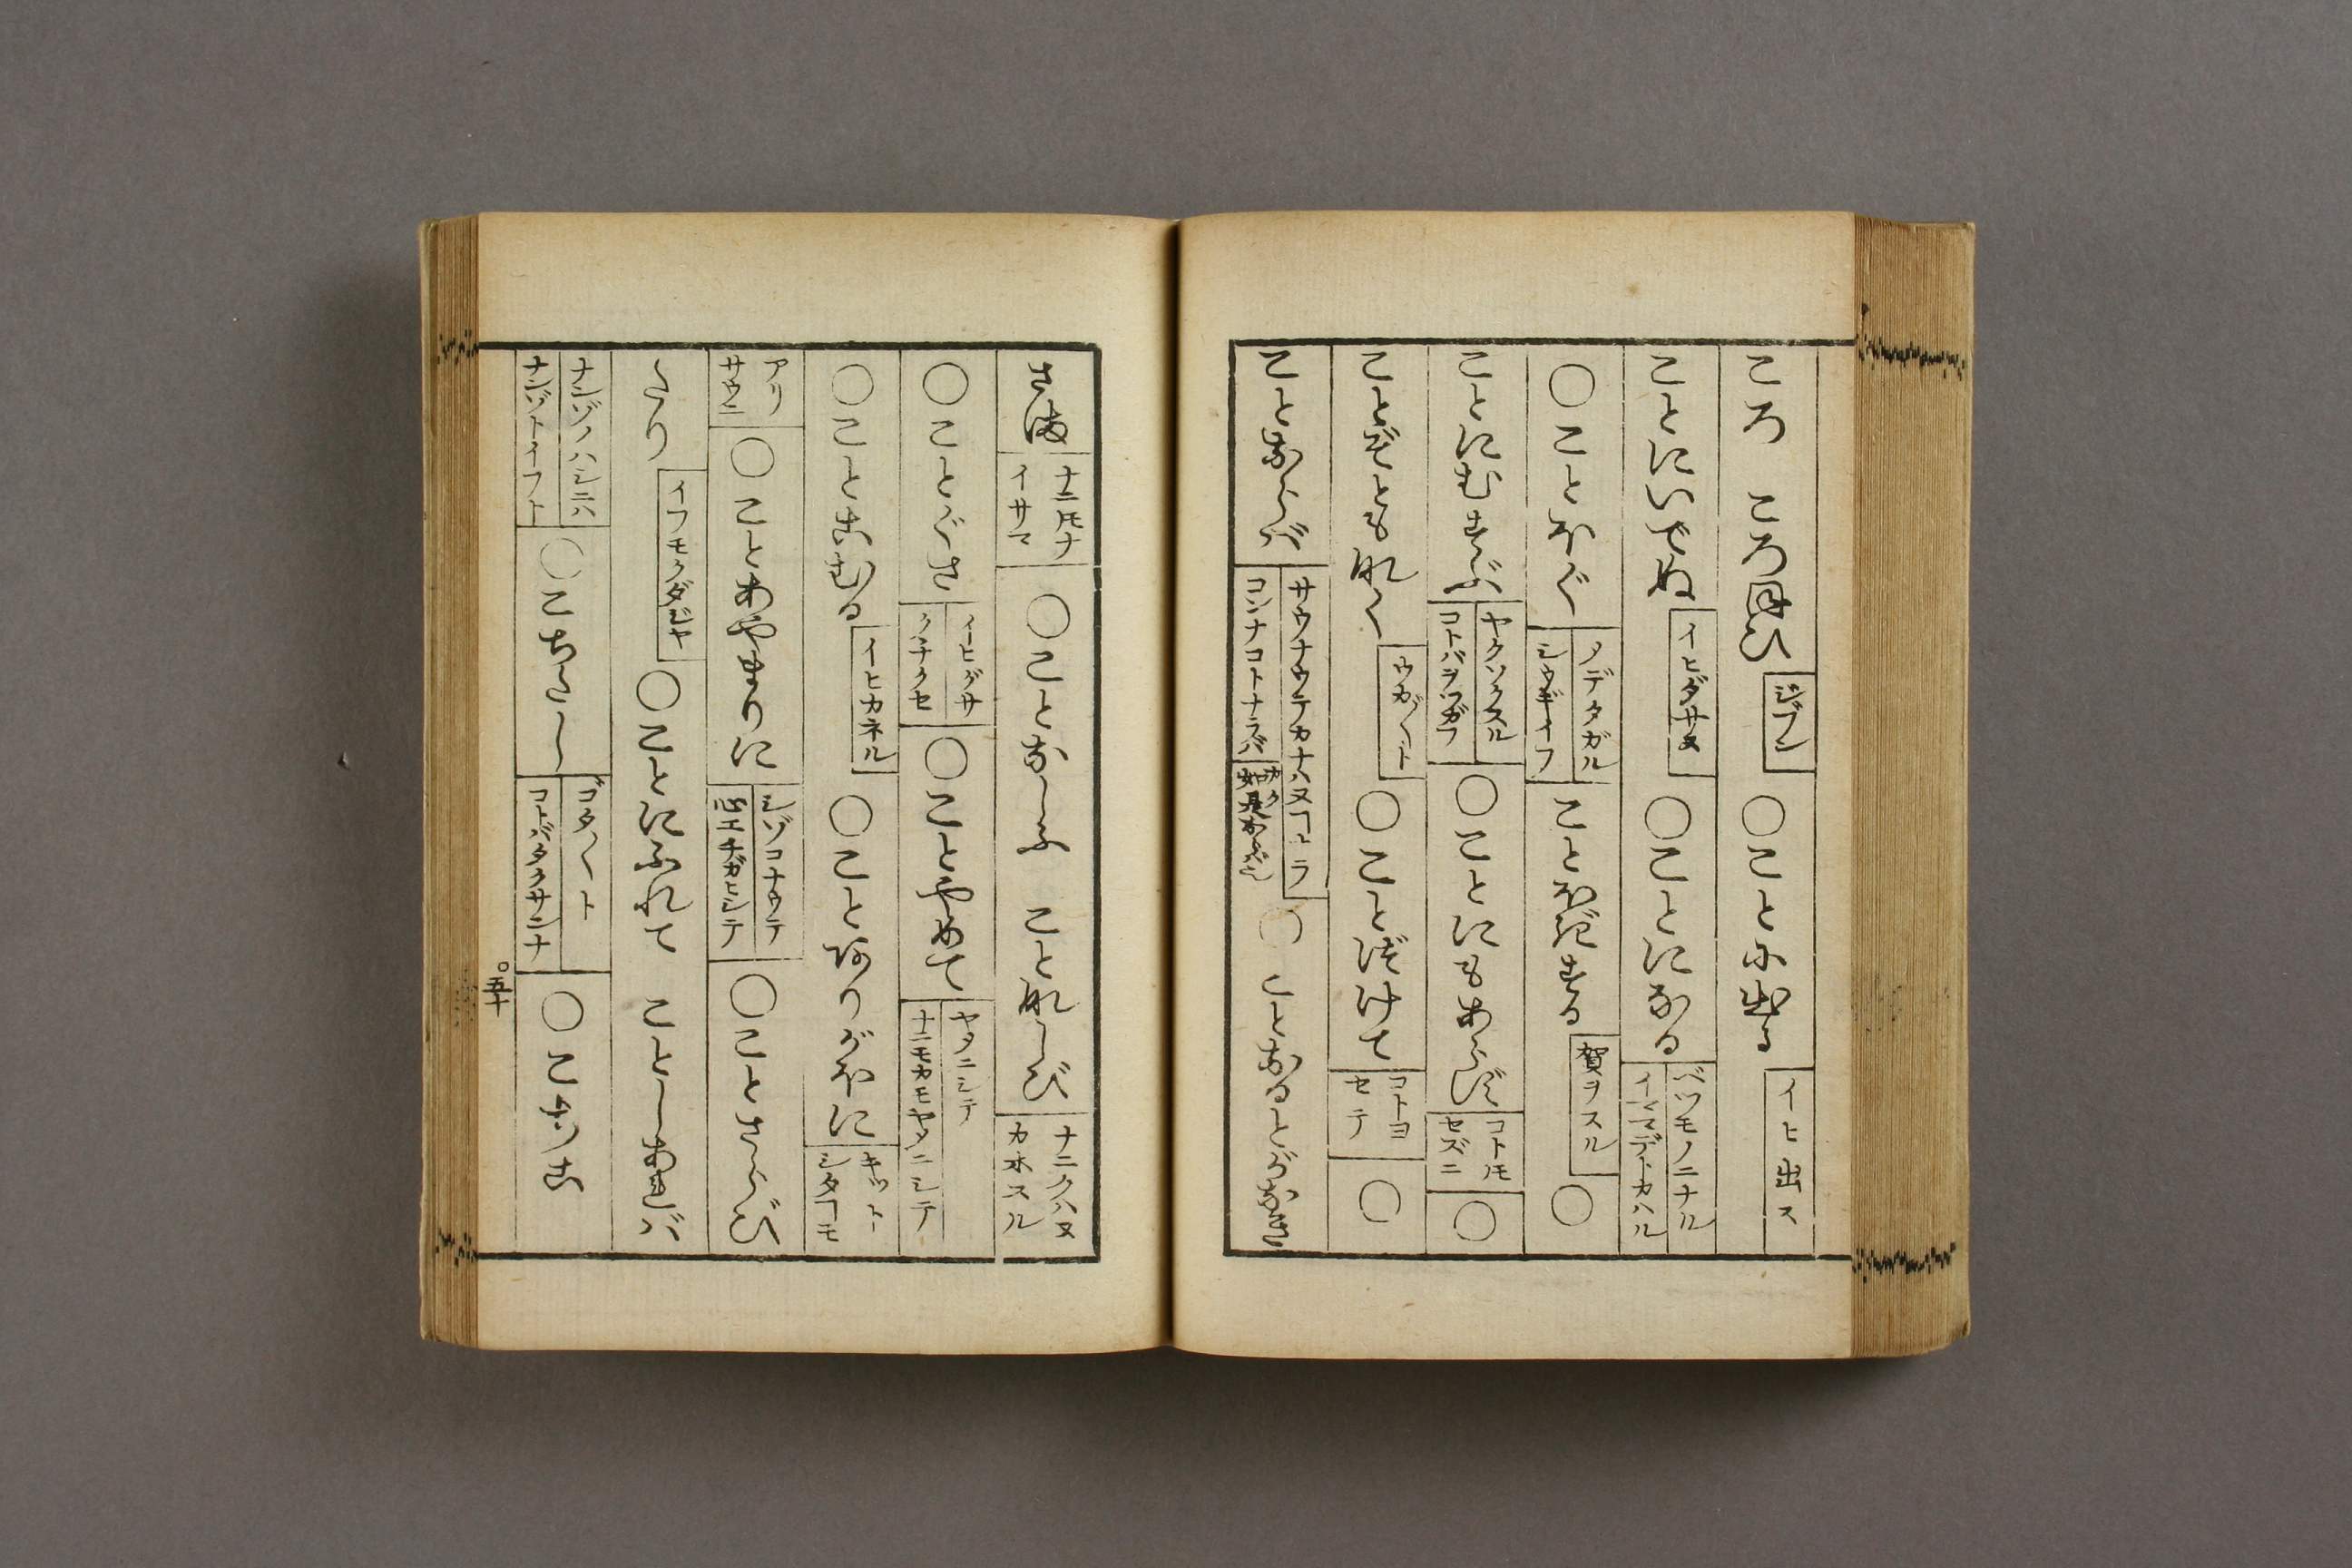 ころ　ころほひ　ジブン　〇ことに出る　イヒ出ス
ことにいでぬ　イヒダサヌ　〇ことになる　ベツモノニナル　イママデトカハル
〇ことほぐ　メデタガル　シウギイフ　ことほぎする　賀ヲスル　〇
ことにむすぶ　ヤクソクスル　コトバヲツガフ　〇ことにもあらず　コトトモセズニ　〇
ことぞともなく　ウカ〳〵ト　〇ことづけて　コトヨセテ　〇
ことならバ　サウナウテカナハヌコトナラ　コンナコトナラバ　〇　ことなるとがなき
さま　ナニトモナイサマ　〇ことなしふ　ことなしび　ナニクハヌカホスル
〇ことぐさ　イヒグサ　クチクセ　〇ことやめて　ヤメニシテ　ナニモカモヤメニシテ
〇ことこむる　イヒカネル　〇ことありがほに　キットシタコトモ
アリサウニ　〇ことあやまりに　シゾコナウテ　心エチガヒシテ　〇ことさらび
たり　イフモクダジヤ　〇ことにふれて　ことしあれバ
ナンゾノハシニハ　ナンゾトイフト　〇こちたし　ゴタ〳〵ト　コトバタクサンナ　〇こちこ
〇五十